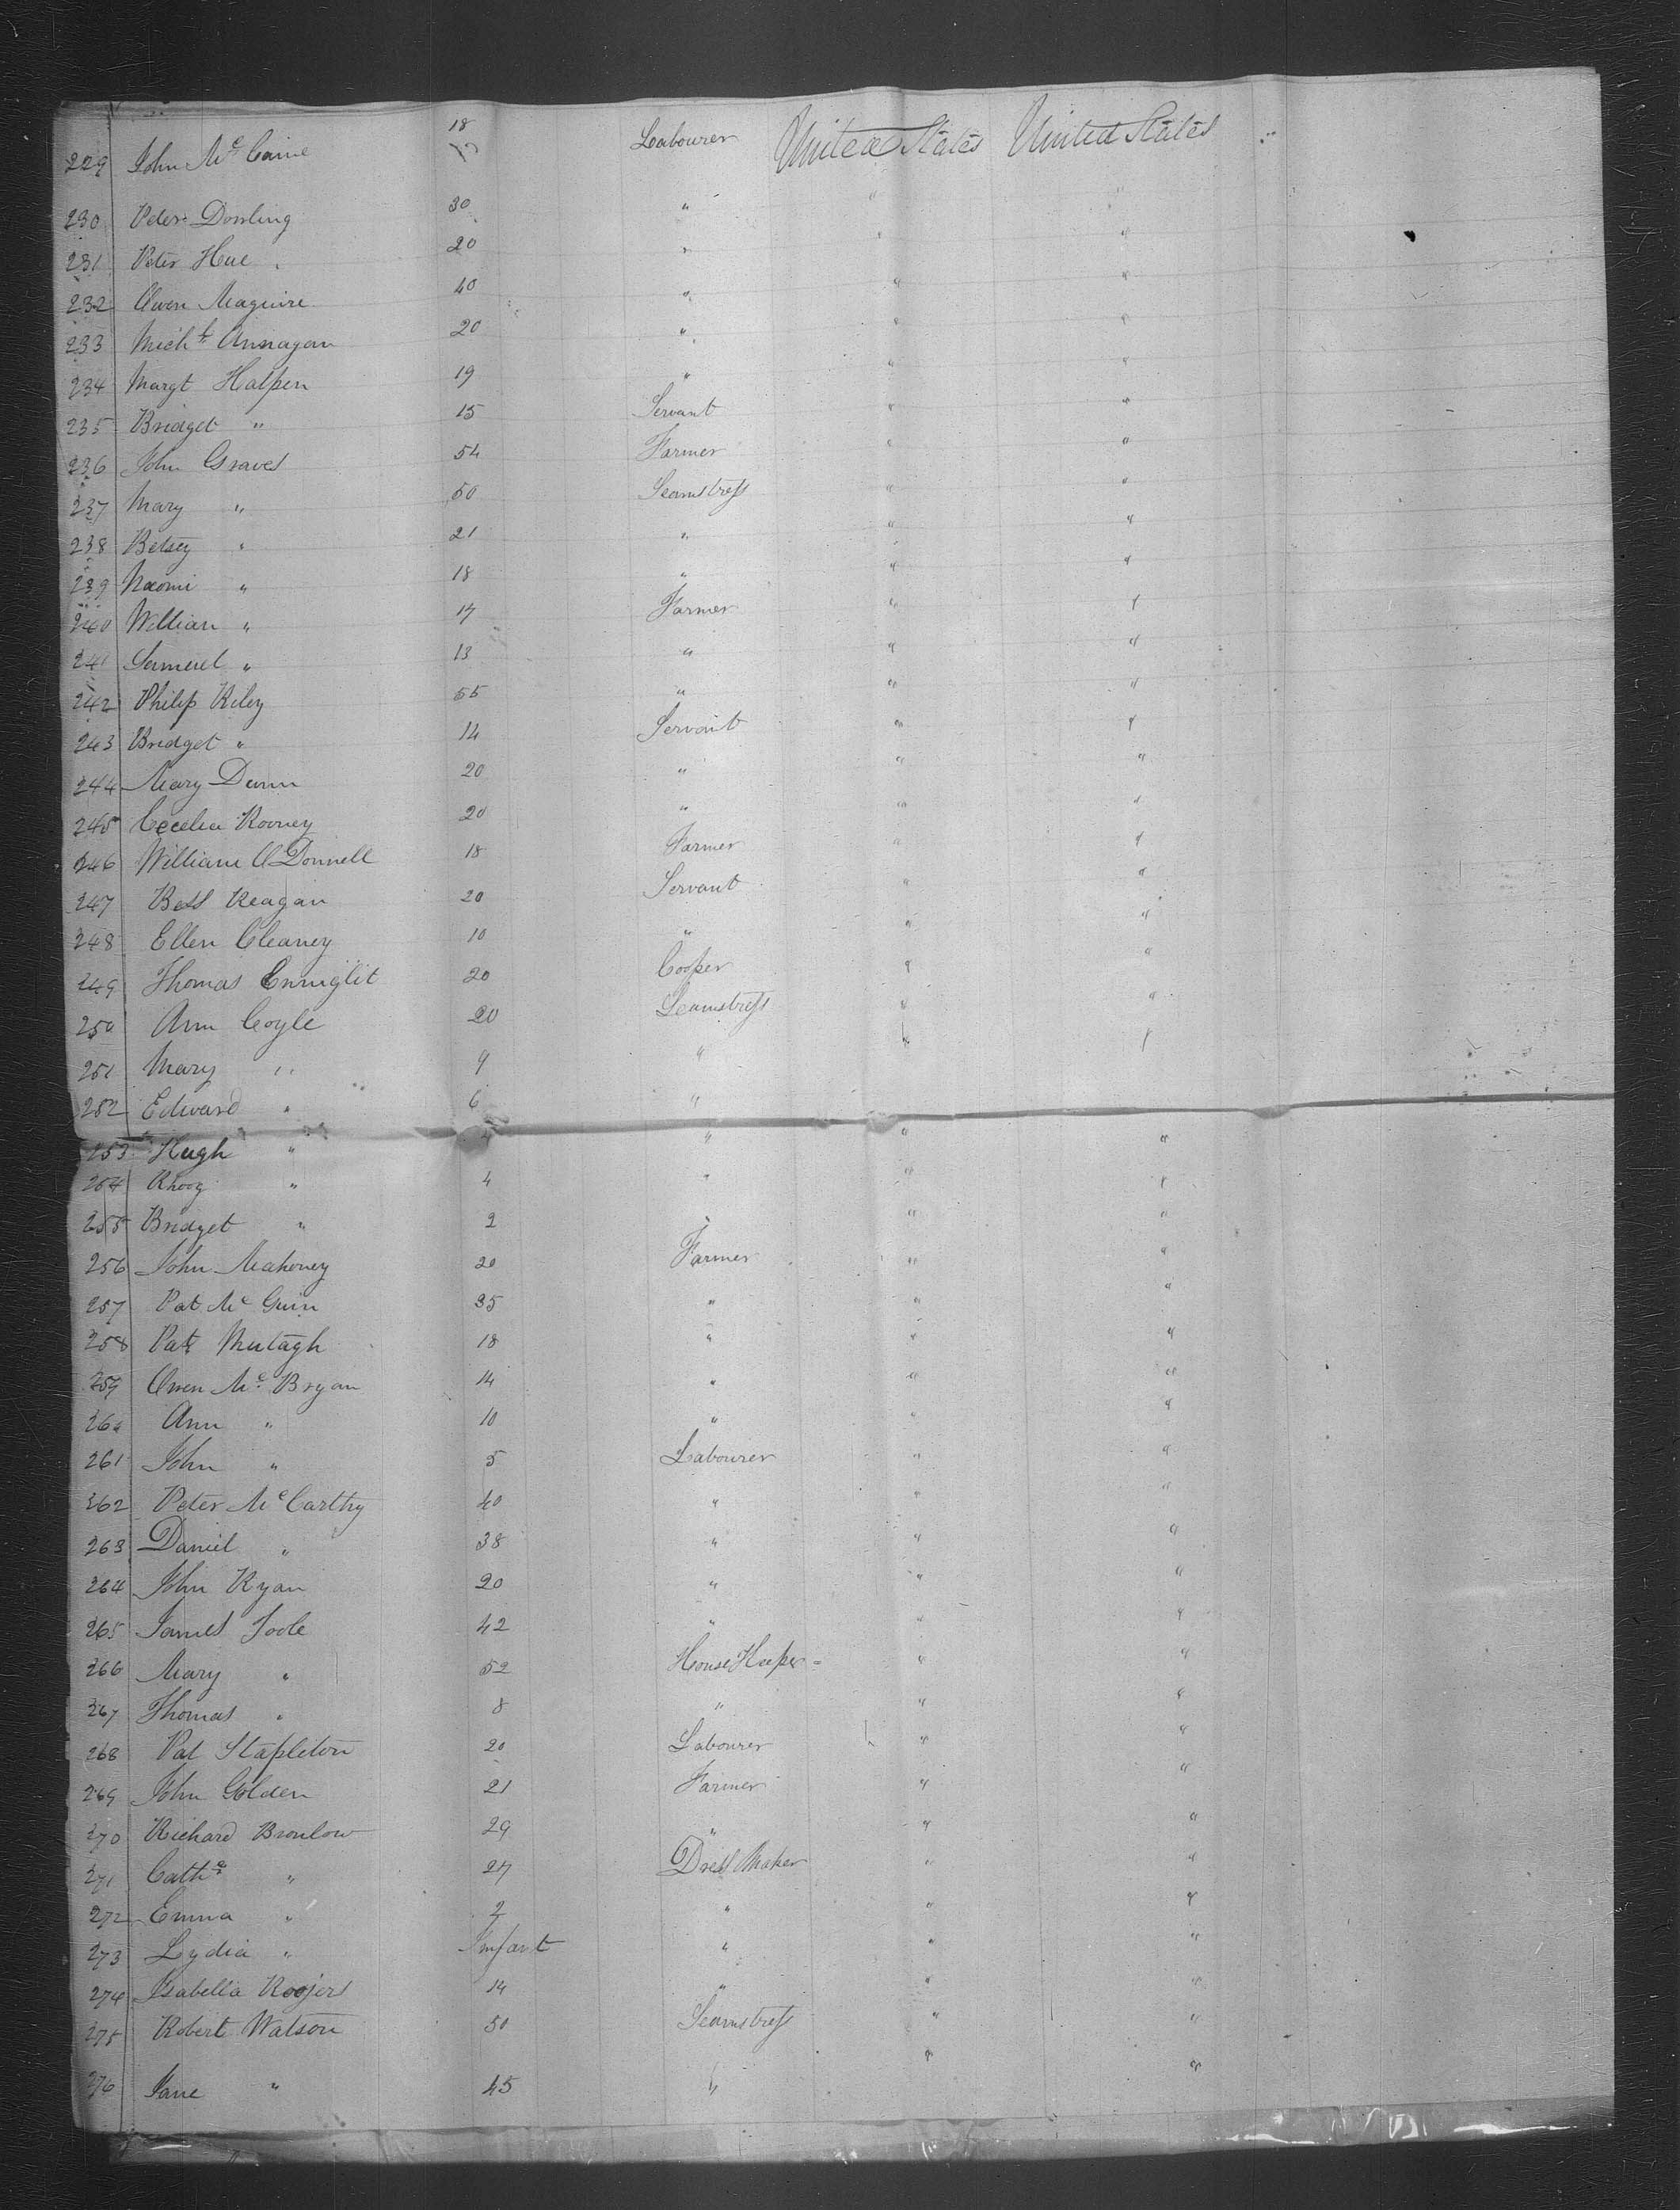 229 John Mc Caine 18 Labourer United States United States
230 Peter Dowling 30 " " "
231 Peter Hue 20 " " "
232 Owen Maguire 40 " " "
233 Michl Annagan 20 " " "
234 Margt Halpen 19 " " "
235 Bridget " 15 Servant " "
236 John Graves 54 Farmer " "
237 Mary " 50 Seamstress " "
238 Betsey " 21 " " "
239 Naomi " 18 " " "
240 William " 17 Farmer " "
241 Samuel " 13 " " "
242 Philip Riley 55 " " "
243 Bridget " 14 Servant " "
244 Mary Dunn 20 " " "
245 Cecelia Rooney 20 " " "
246 William O Donnell 18 Farmer " "
247 Bess Reagan 20 Servant " "
248 Ellen Cleaney 10 " " "
249 Thomas Enniglit 20 Cooper " "
250 Ann Coyle 20 Seamstress " "
251 Mary " 9 " " "
252 Edward " 6 "
253 Hugh " " " "
254 " 4 " " "
255 Bridget " 2 " " "
256 John Mahoney 20 Farmer " "
257 Pat Mc Guin 35 " " "
258 Pat Mutagh 18 " " "
259 Owen Mc Bryan 14 " " "
260 Ann " 10 " " "
261 John " 5 Labourer " "
262 Peter McCarthy 40 " " "
263 Daniel " 38 " " "
264 John Ryan 20 " " "
265 James Toole 42 " " "
266 Mary " 52 House Keeper " "
267 Thomas " 8 " " "
268 Pat Stapleton 20 Labourer " "
269 John Golden 21 Farmer " "
270 Richard Bronlow 29 " " "
271 Cathe " 27 Dress Maker " "
272 Emma " 2 " " "
273 Lydia " Infant " " "
274 Isabella Roojers 14 " " "
275 Robert Watson 50 Seamstress " "
276 Jane " 45 " " "